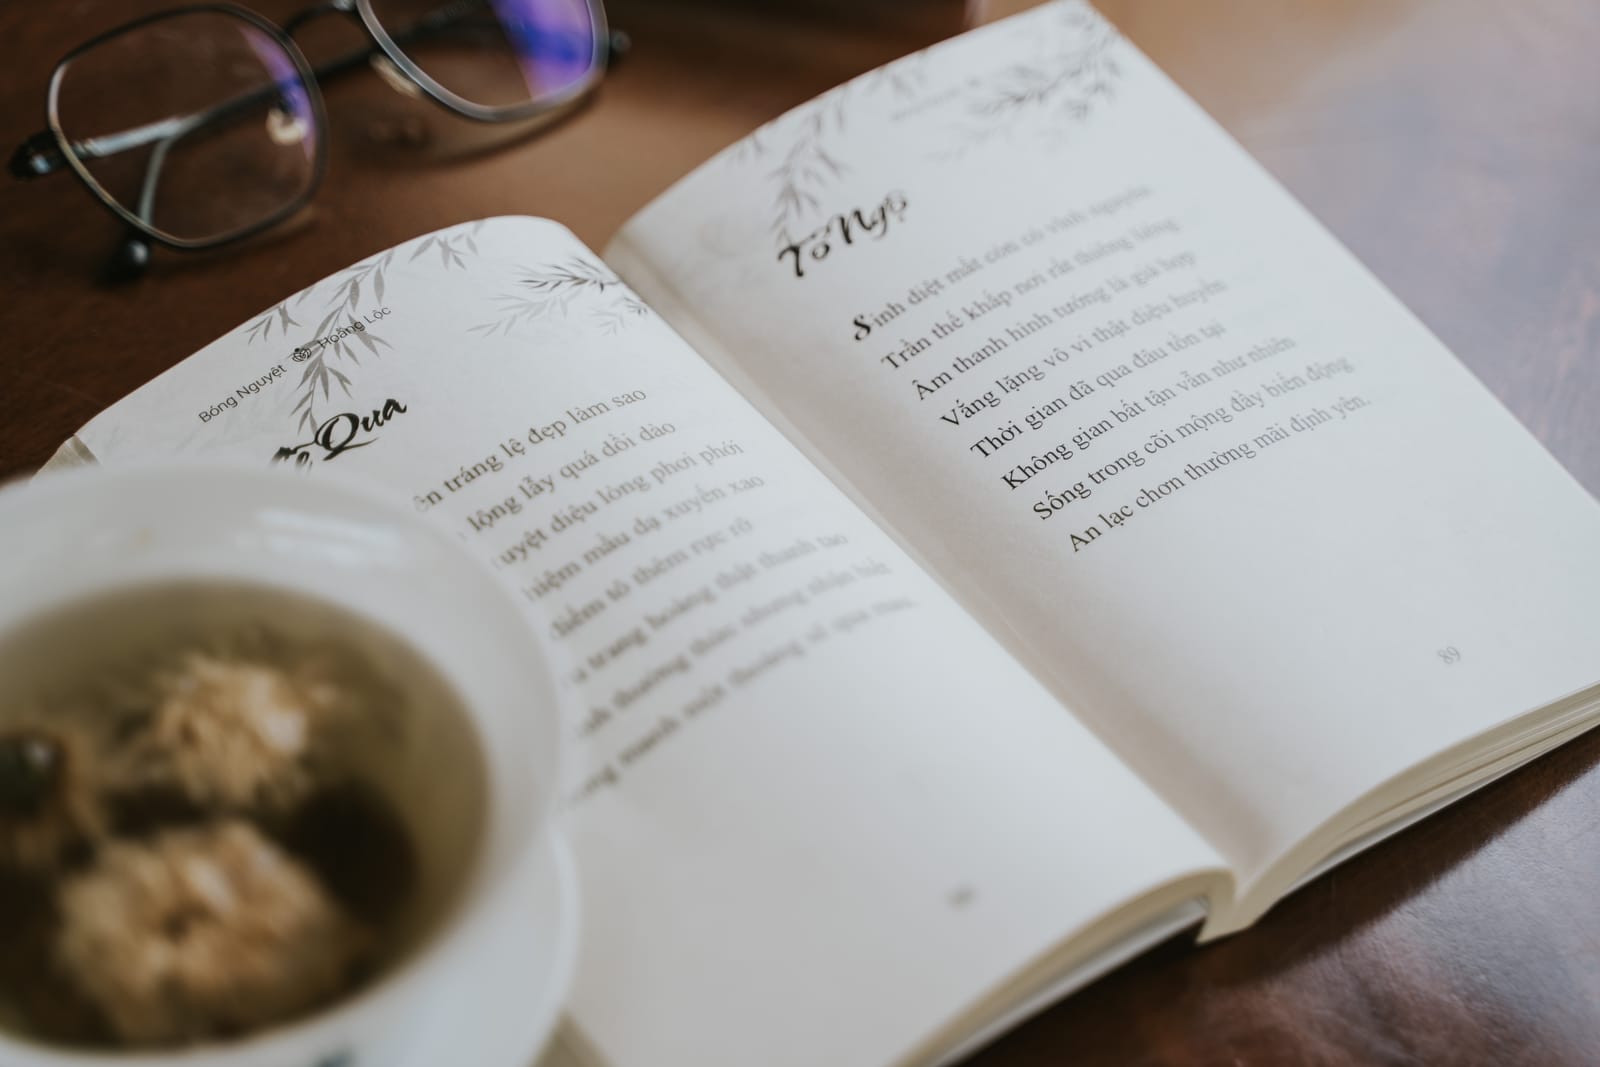 Bóng Nguyệt Hoằng Lộc
Qua
tráng lệ đẹp làm sao
lộng lẫy quá dồi dào
diệu lòng phơi phới
mầu dạ xuyến xao
tô thêm rực rỡ
trang hoàng thật thanh tao
thường thức nhưng nhận biết
manh mút thoáng sẽ qua mau.
Tỏ Ngộ
Sinh diệt mất còn có vĩnh nguyên
Trần thế khắp nơi rất thiêng liêng
Âm thanh hình tướng là giả hợp
Vắng lặng vô vi thật diệu huyền
Thời gian đã qua đâu tồn tại
Không gian bất tận vẫn như nhiên
Sống trong cõi mộng đầy biến động
An lạc chơn thường mãi định yên.
89